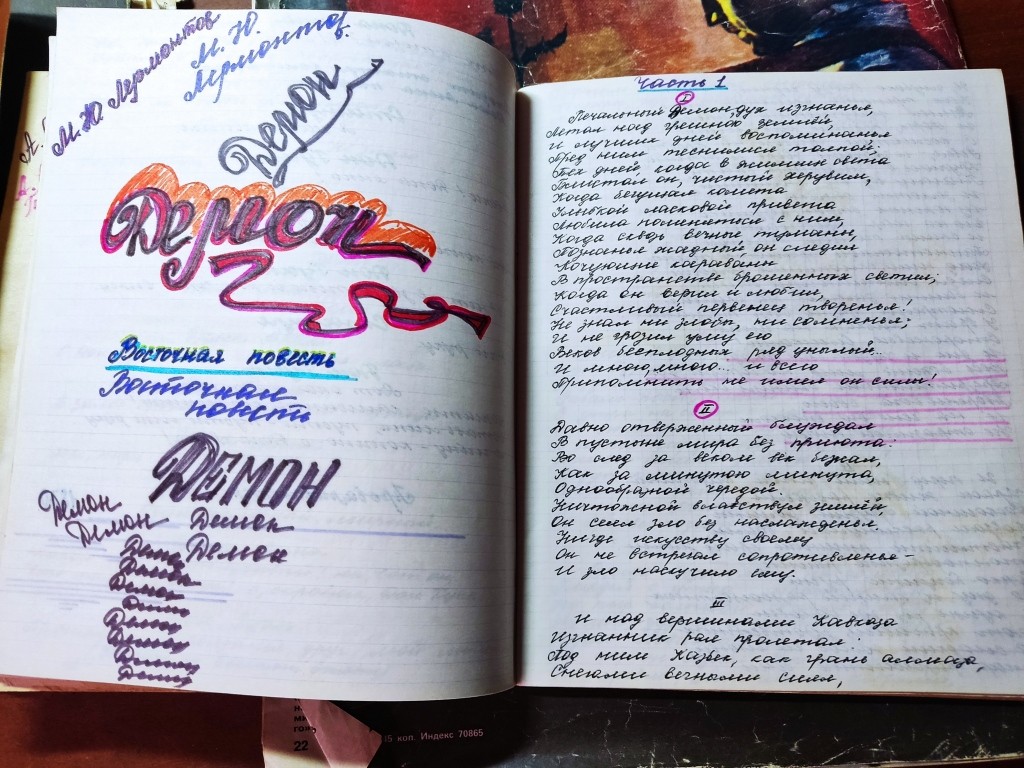 М. Ю. Лермонтов
М. Ю.
Лермонтов
А.
Демон
Демон
Восточная повесть
Восточная
повесть
ДЕМОН
Демон
Демон
Демон
Демон
Демон
Демон
Демон
Демон
Демон
Демон
Часть 1
I
Печальный Демон, дух изгнанья,
Летал над грешною землёй,
И лучших дней воспоминанья
Пред ним теснилися толпой;
Тех дней, когда в жилище света
Блистал он, чистый херувим,
Когда бегущая комета
Улыбкой ласковой привета
Любила поменяться с ним,
Когда сквозь вечные туманы,
Познанья жадный он следил
Кочующие караваны
В пространстве брошенных светил;
Когда он верил и любил,
Счастливый первенец творенья!
Не знал ни злобы, ни сомненья;
И не грозил уму его
Веков бесплодных ряд унылый...
И много, много... и всего
Припомнить не имел он силы!
II
Давно отверженный блуждал
В пустыне мира без приюта:
Во след за веком век бежал,
Как за минутою минута,
Однообразной чередой.
Ничтожной властвуя землёй,
Он сеял зло без наслажденья.
Нигде искусству своему
Он не встречал сопротивленья –
И зло наскучило ему.
III
И над вершинами Кавказа
Изгнанник рая пролетал:
Под ним Казбек, как грань алмаза,
Снегами вечными сиял,
22
15 коп. Индекс 70865